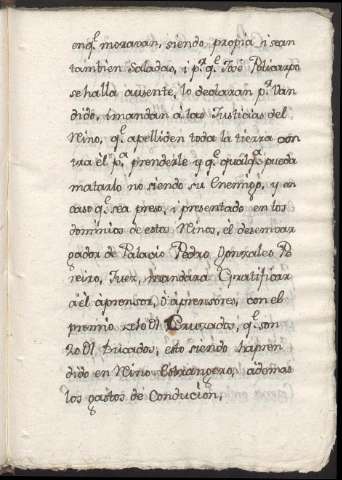 enq̃ moravan, siendo propia i sean
tambien Saladas, i pª q̃ José Policarpo
se halla ausente, lo declaran pʳ Van
dido, i mandan á las Justicias del
Nino, q̃ apelliden toda la tierra con
tra él pª prenderle y q̃ qualqª pueda
matarlo no siendo su Enemigo, y en
caso q̃ sea preso, i presentado en los
dominios de estos Ninos, el desembar
gador de Palacio Pedro Gonzales
reiro, Juez, mandará Gratificar
a el aprensor, ó aprensores, con el
premio Cruzados, q̃ son
Ducados, esto siendo hapren
dido en Nino Estrangero, ademas
los gastos de Conducion,